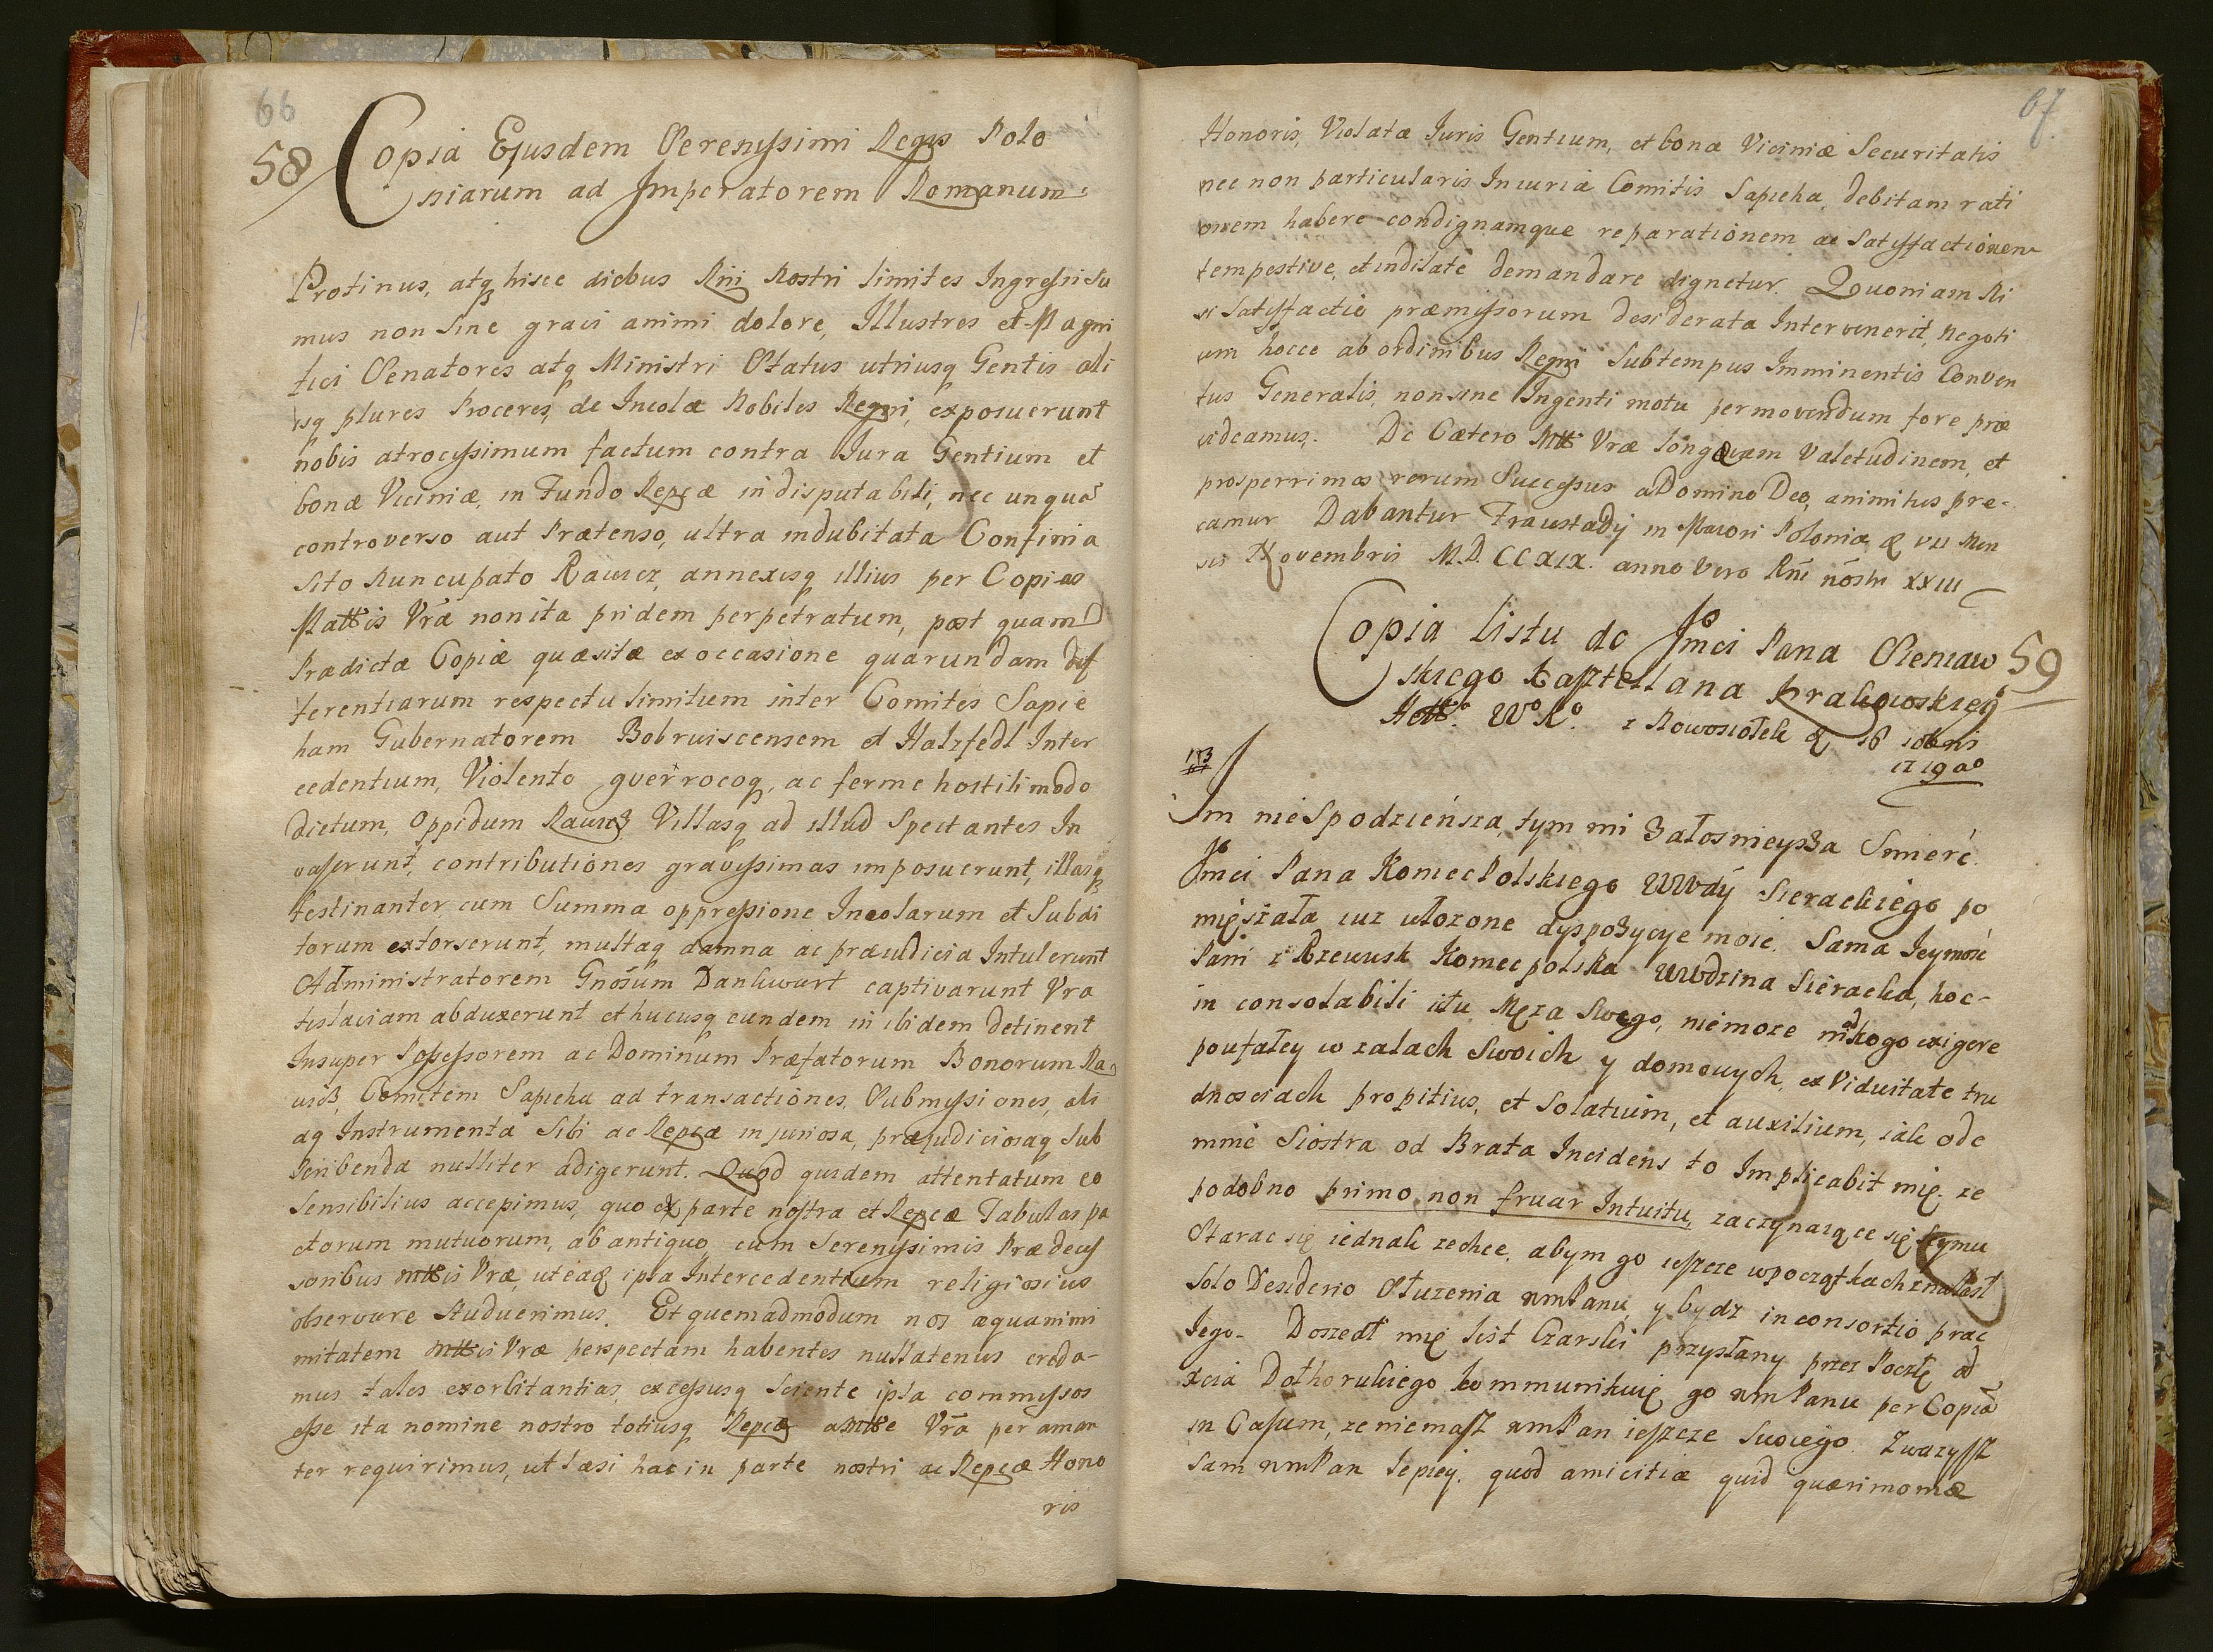 66
58
Copia Ejusdem Serenyssimi Regis Polo
niarum ad Imperatorem Romanum:
Protinus, atq hisce diebus Rñi Nostri limites Ingressi Su
mus non sine gravi animi dolore, Illustres et Magni
fici Senatores atq Ministri Status utriusq Gentis ali
isq plures Proceres, de Incolæ Nobiles Regni, exposuerunt
nobis atrocyssimum factum contra Jura Gentium et
bonæ Viciniæ, in Fundo Repcæ indisputabili, nec unqua
controverso aut Prætenso, ultra indubitata Confinia
sito Nuncupato Rawicz annexisq illius per Copias
Mattis Vræ non ita pridem perpetratum, post quam
Prædictæ Copiæ quæsitæ ex occasione quarundam dif
ferentiarum respectu limitum inter Comites Sapie
ham Gubernatorem Bobruiscensem et Hatzfedl Inter
cedentium, Violento gverrocoq, ac ferme hostili modo
dictum, Oppidum Rawicz Villasq ad illud Spectantes In
vaserunt, contributiones gravyssimas imposuerunt, illasq
festinanter cum Summa oppressione Incolarum et Subdi
torum extorserunt, multaq damna ac præiudicia Intulerunt
Administratorem Gnosum Dankwart captivarunt Vra
tislaviam abduxerunt et hucusq eundem in ibidem detinent
Insuper Possessorem ac Dominum Præfatorum Bonorum Ra-
wicz, Comitem Sapieha ad transactiones, Submyssiones, ali
aq Instrumenta Sibi ac Repcæ injuriosa, præjudiciosaq Sub
scribenda nulliter adigerunt. Quod quidem attentatum eo
Sensibilius accepimus, quo ex parte nostra et Repcæ Tabulas pa
ctorum mutuorum, ab antiquo cum Serenyssimis Prædecess
soribus mttis Vræ, uteaq ipsa Intercedentium religiosius
observare Studuerimus. Et quemadmodum nos æquanimi
mitatem mttis Vræ perspectam habentes nullatenus credo-
mus tales exorbitantias, excessusq Sciente ipsa commyssos
esse ita nomine nostro totiusq Repcæ a mtte Vra per aman
ter requirimus, ut læsi hac in parte nostri ac Repcæ Hono
ris
67
Honoris, Violatæ Juris Gentium, et bonæ Viciniæ Securitatis
nec non particularis Iniuriæ Comitis Sapieha, debitam rati
onem habere condignamque reparationem ac Satysfactionem
tempestive, et indilate demandare dignetur. Quoniam Ni
si Satysfactio præmyssorum desiderata Intervenerit, negoti
um hocce ab ordinibus Regni Subtempus Imminentis Conven
tus Generalis, non sine Ingenti motu permovendum fore præ
videamus. De Cætero Mtti Vræ longævam Valetudinem, et
prosperrimos rerum Successus a Domino Deo, animitus pre-
camur Dabantur Fraustadÿ in Maiori Polonia d VII Men
sis Novembris M.D.CCXIX. anno vero Rñi nostri XXIII
Copia listu do Jmci Pana Sieniaw
skiego Kasztellana Krakowskiego
59
Hetto Wo Ko. z Nowosiołek d 16 10bris
1719 ao
113
Im niespodzieńsza, tym mi Załosnieysza Smierć
Jmci Pana KoniecPolskiego WWdÿ Sieradzkiego po
mięszała iuz ułozone dyspozycye moie. Sama Jeymość
Pani z Rzewusk Koniecpolska WWdzina Sieradzka, hoc-
in consolabili ictu Męza Swego, niemoze nikogo exigere
poufałey w zalach Swoich y domowych, ex Viduitate tru
dnosciach propitius, et Solatium, et auxilium, iak ode
mnie Siostra od Brata Incidens to Implicabit mię, ze
podobno primo non fruar Intuitu, zaczynaiącce się Seymu
Starac się iednak zechce, abym go ieszcze wpoczątkach znalasł
Solo Desiderio Słuzenia WmPanu, y bydz in consortio prac
Jego. Doszedł mię list Czarski przysłany przez Pocztę od
Xcia Dołhorukiego kommunikuię go WmPanu per Copia
in Casum, ze niemasz WmPan ieszcze Swoiego. Zwazysz
Sam WmPan lepiey, quod amicitiæ quid quærimoniæ